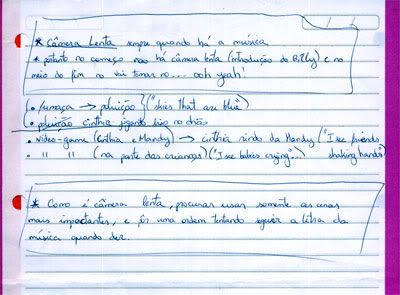 * Câmera Lenta sempre quando há a música
* portanto no começo não há câmera lenta (introdução do Billy) e no
meio do fim no vai tomar no... ooh yeah!
• fumaça → poluição } ("skies that are blue")
• poluição Cinthia jogando lixo no chão
• video-game (Cinthia e Mandy) → cinthia rindo da Mandy ("I see friends
shaking hands")
• " " (na parte das crianças) ("I see babies crying"...)
* Como é câmera lenta, procurar usar somente as cenas
mais importantes, e pôr uma ordem tentando seguir a letra da
música quando der.